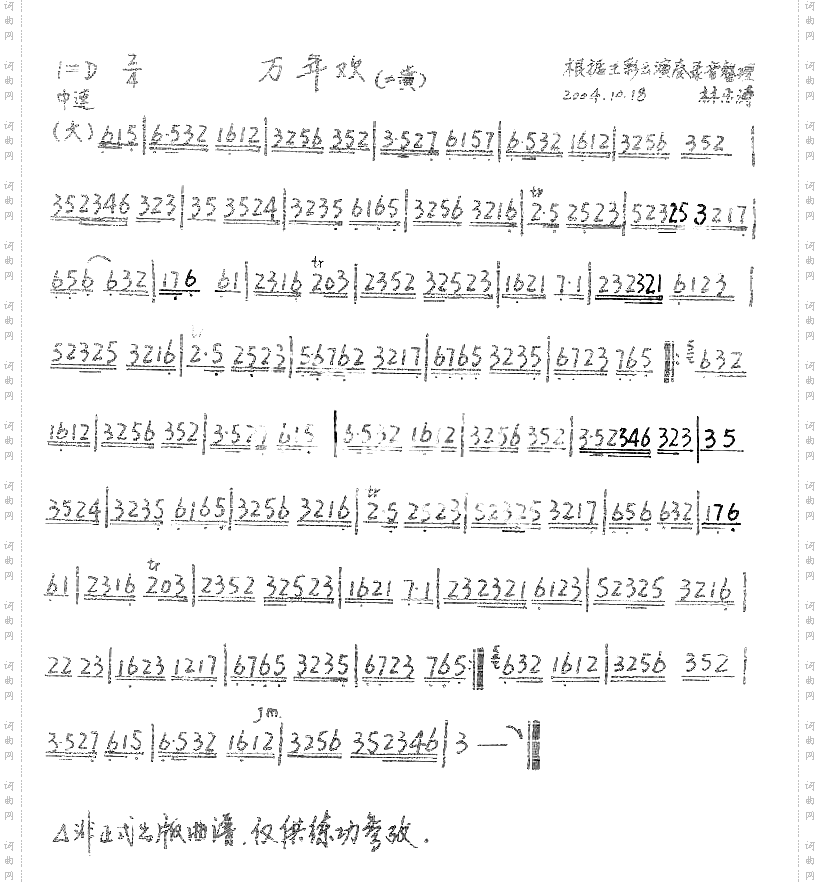 1=D 2/4 万年欢(二黄) 根据王彩云演奏录音整理
中速 2004.10.18 林东涛
(大) 615|6·532 1612|3256 352|3·527 6157|6·532 1612|3256 352|
352346 323|35 3524|3235 6165|3256 3216|tr 2·5 2523|52325 3217|
656 632|176 61|2316 tr 203|2352 32523|1621 7·1|232321 6123|
52325 3216|2·5 2523|56762 3217|6765 3235|6723 765 ‖: 632
1612|3256 352|3·527 615|6·532 1612|3256 352|3·52346 323|35
3524|3235 6165|3256 3216|tr 2·5 2523|52325 3217|656 632|176
61|2316 tr 203|2352 32523|1621 7·1|232321 6123|52325 3216|
22 23|1623 1217|6765 3235|6723 765 :‖ 632 1612|3256 352|
3·527 615|6·532 1612|3256 352346|3 — ‖
△非正式出版曲谱,仅供练功参考.
词曲网